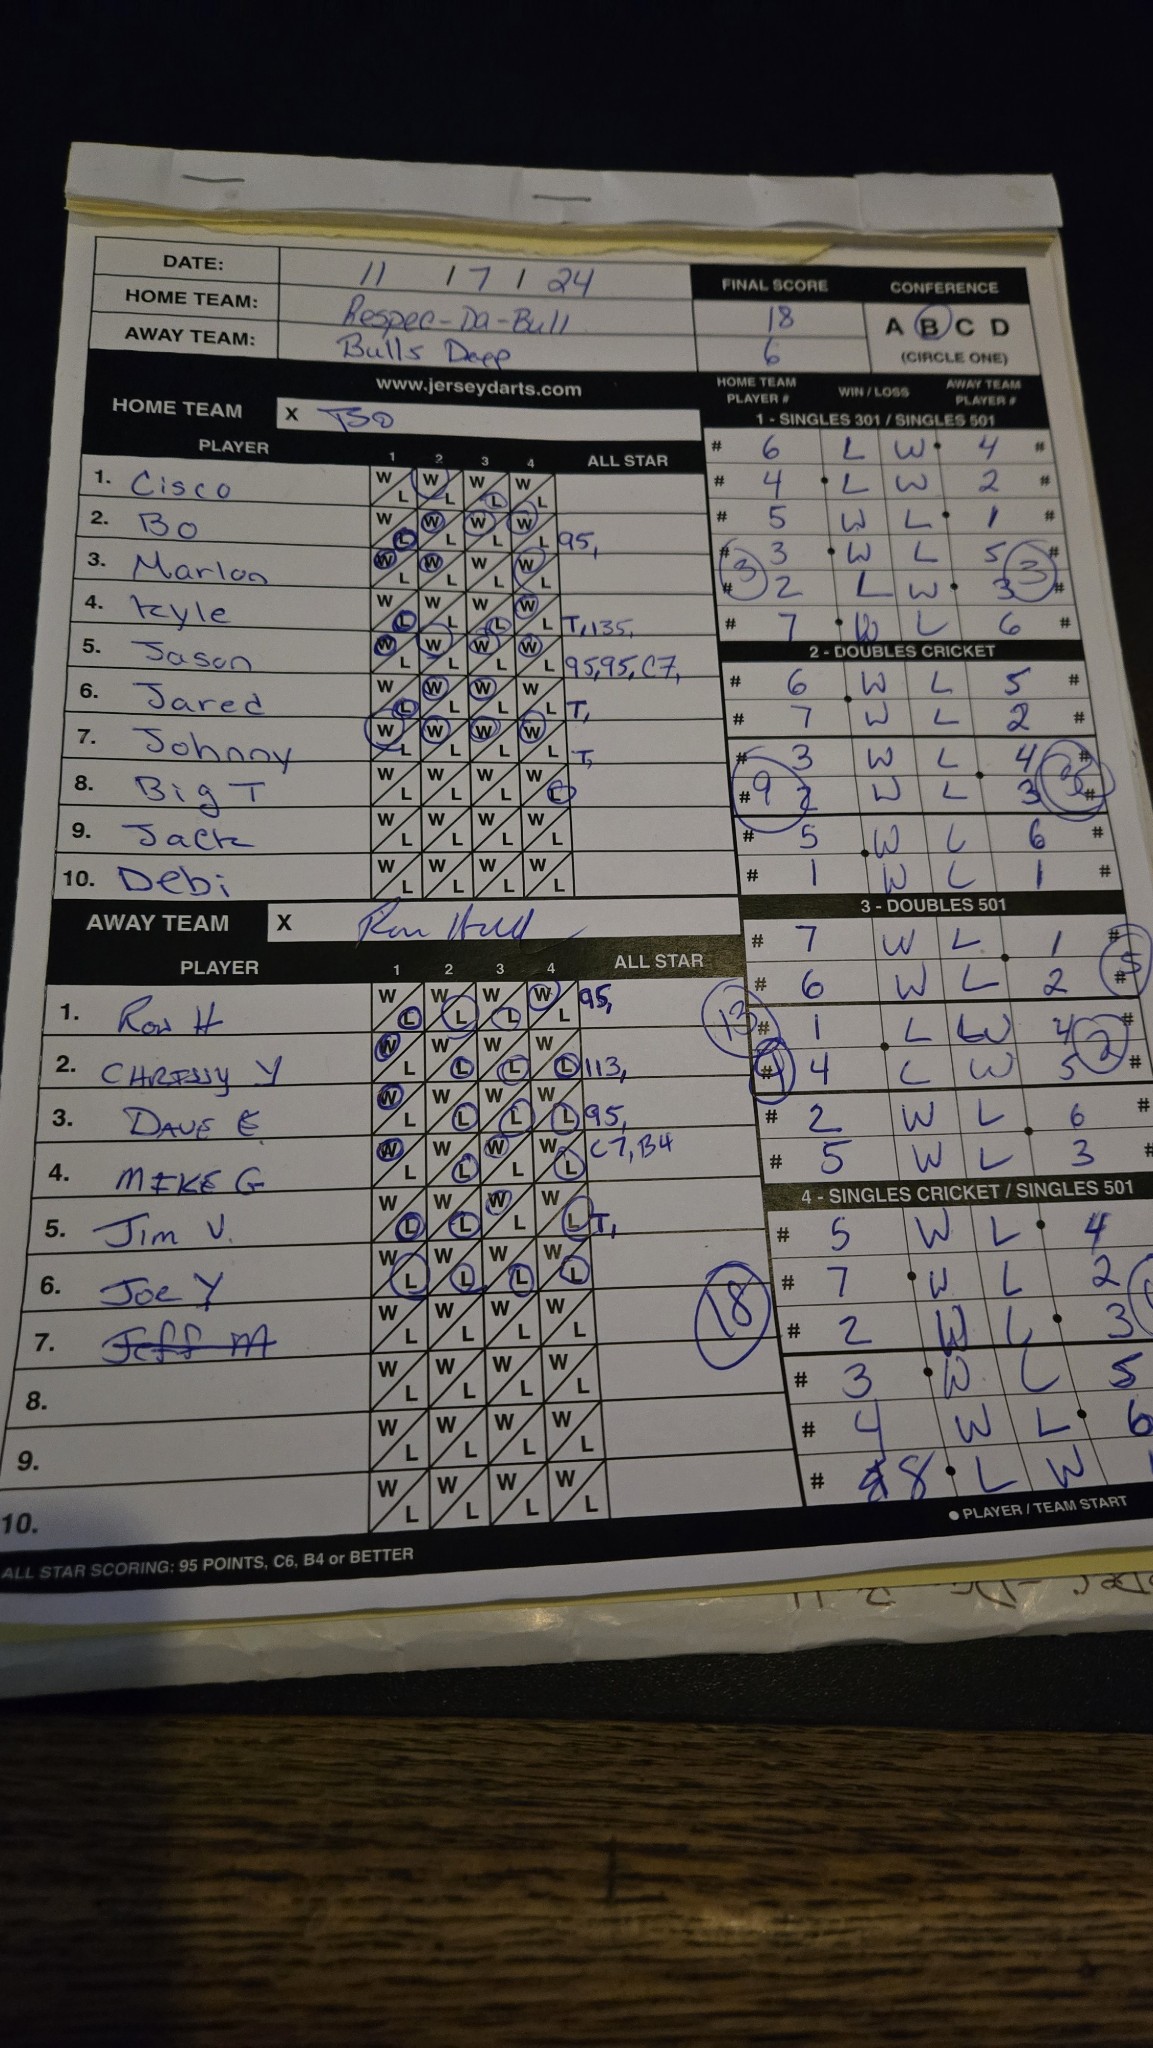 DATE: 11 / 7 / 24
HOME TEAM: Respec-Da-Bull
AWAY TEAM: Bulls Deep
FINAL SCORE
18
6
CONFERENCE
A B C D
(CIRCLE ONE)
www.jerseydarts.com
HOME TEAM X
PLAYER 1 2 3 4 ALL STAR
1. Cisco W L W L W L W L
2. Bo W L W L W L W L 95,
3. Marlon W L W L W L W L
4. Kyle W L W L W L W L T,135,
5. Jason W L W L W L W L 95,95,C7,
6. Jared W L W L W L W L T,
7. Johnny W L W L W L W L T,
8. Big T W L W L W L W L
9. Jack W L W L W L W L
10. Debi W L W L W L W L
AWAY TEAM X Ron Hull
PLAYER 1 2 3 4 ALL STAR
1. Ron H W L W L W L W L 95,
2. CHRISSY Y W L W L W L W L 113,
3. DAVE E W L W L W L W L 95,
4. MIKE G W L W L W L W L C7,B4
5. Jim V. W L W L W L W L T,
6. Joe Y W L W L W L W L
7. Jeff M W L W L W L W L
8. W L W L W L W L
9. W L W L W L W L
10. W L W L W L W L
ALL STAR SCORING: 95 POINTS, C6, B4 or BETTER
HOME TEAM PLAYER # WIN / LOSS AWAY TEAM PLAYER #
1 - SINGLES 301 / SINGLES 501
# 6 L W 4 #
# 4 L W 2 #
# 5 W L 1 #
# 3 W L 5 #
3 3
# 2 L W 3 #
# 7 W L 6 #
2 - DOUBLES CRICKET
# 6 W L 5 #
# 7 W L 2 #
# 3 W L 4 #
9
# 2 W L 3 #
# 5 W L 6 #
# 1 W L 1 #
3 - DOUBLES 501
# 7 W L 1 #
# 6 W L 2 #
13
# 1 L W 4 #
# 4 L W 5 #
# 2 W L 6 #
# 5 W L 3 #
4 - SINGLES CRICKET / SINGLES 501
# 5 W L 4
# 7 W L 2
18
# 2 W L 3
# 3 W L 5
# 4 W L 6
# 8 L W
PLAYER / TEAM START